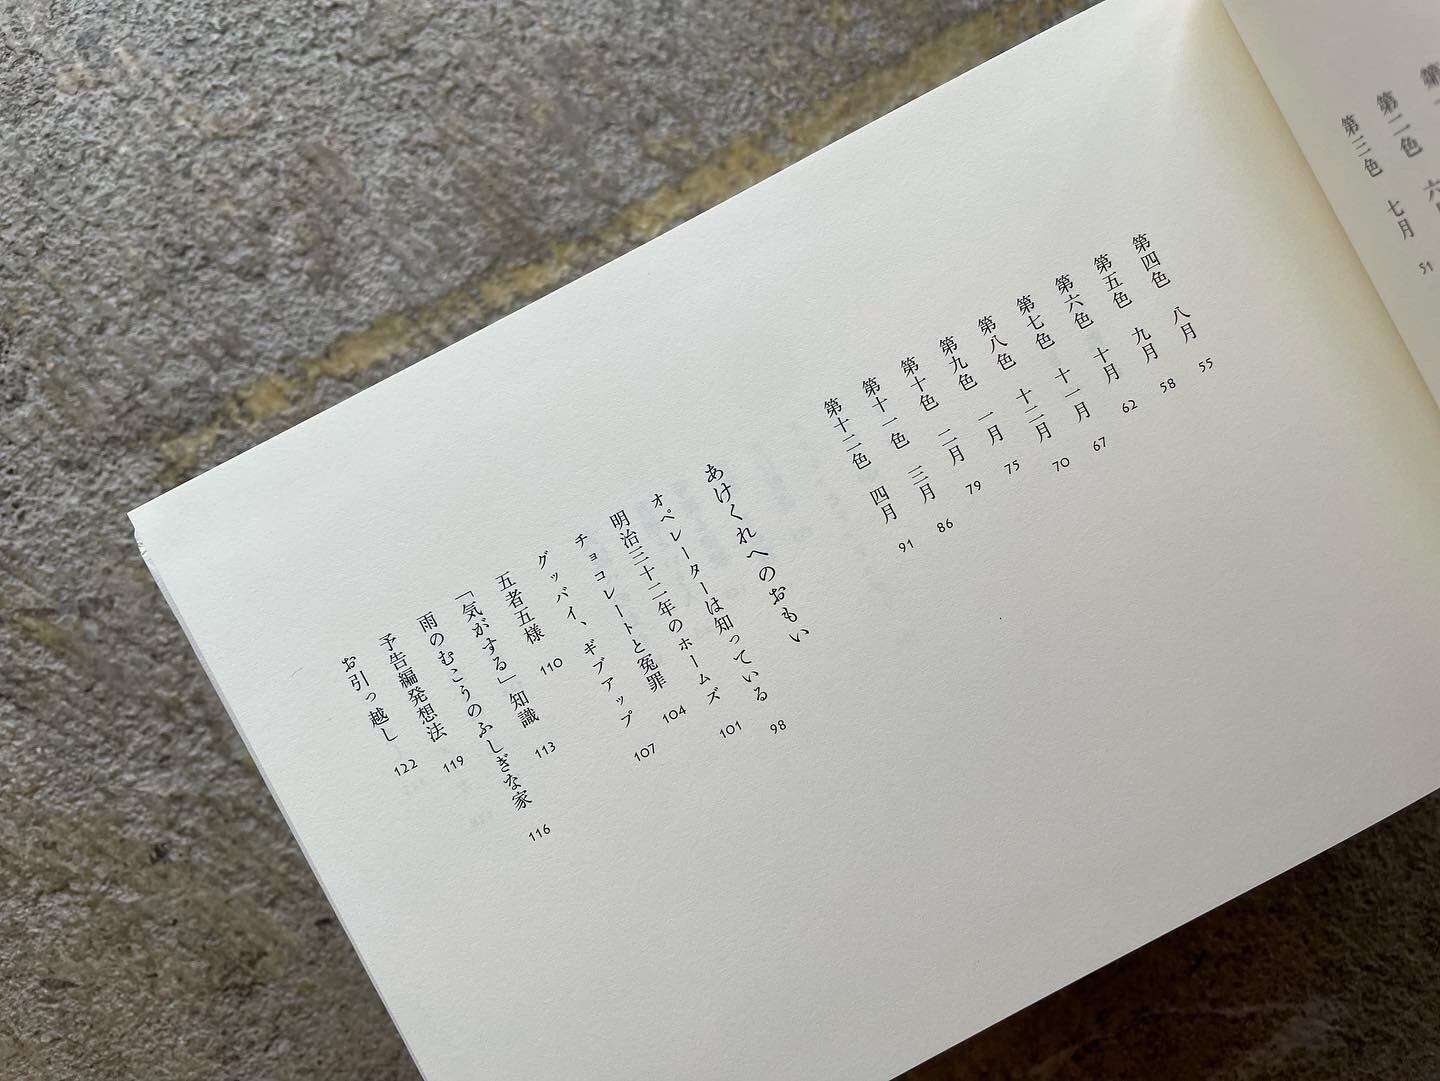 第二色
第三色 七月 51
第四色 八月 55
第五色 九月 58
第六色 十月 62
第七色 十一月 67
第八色 十二月 70
第九色 一月 75
第十色 二月 79
第十一色 三月 86
第十二色 四月 91
あけくれへのおもい
オペレーターは知っている 98
明治三十二年のホームズ 101
チョコレートと冤罪 104
グッバイ、ギブアップ 107
五者五様 110
「気がする」知識 113
雨のむこうのふしぎな家 116
予告編発想法 119
お引っ越し 122